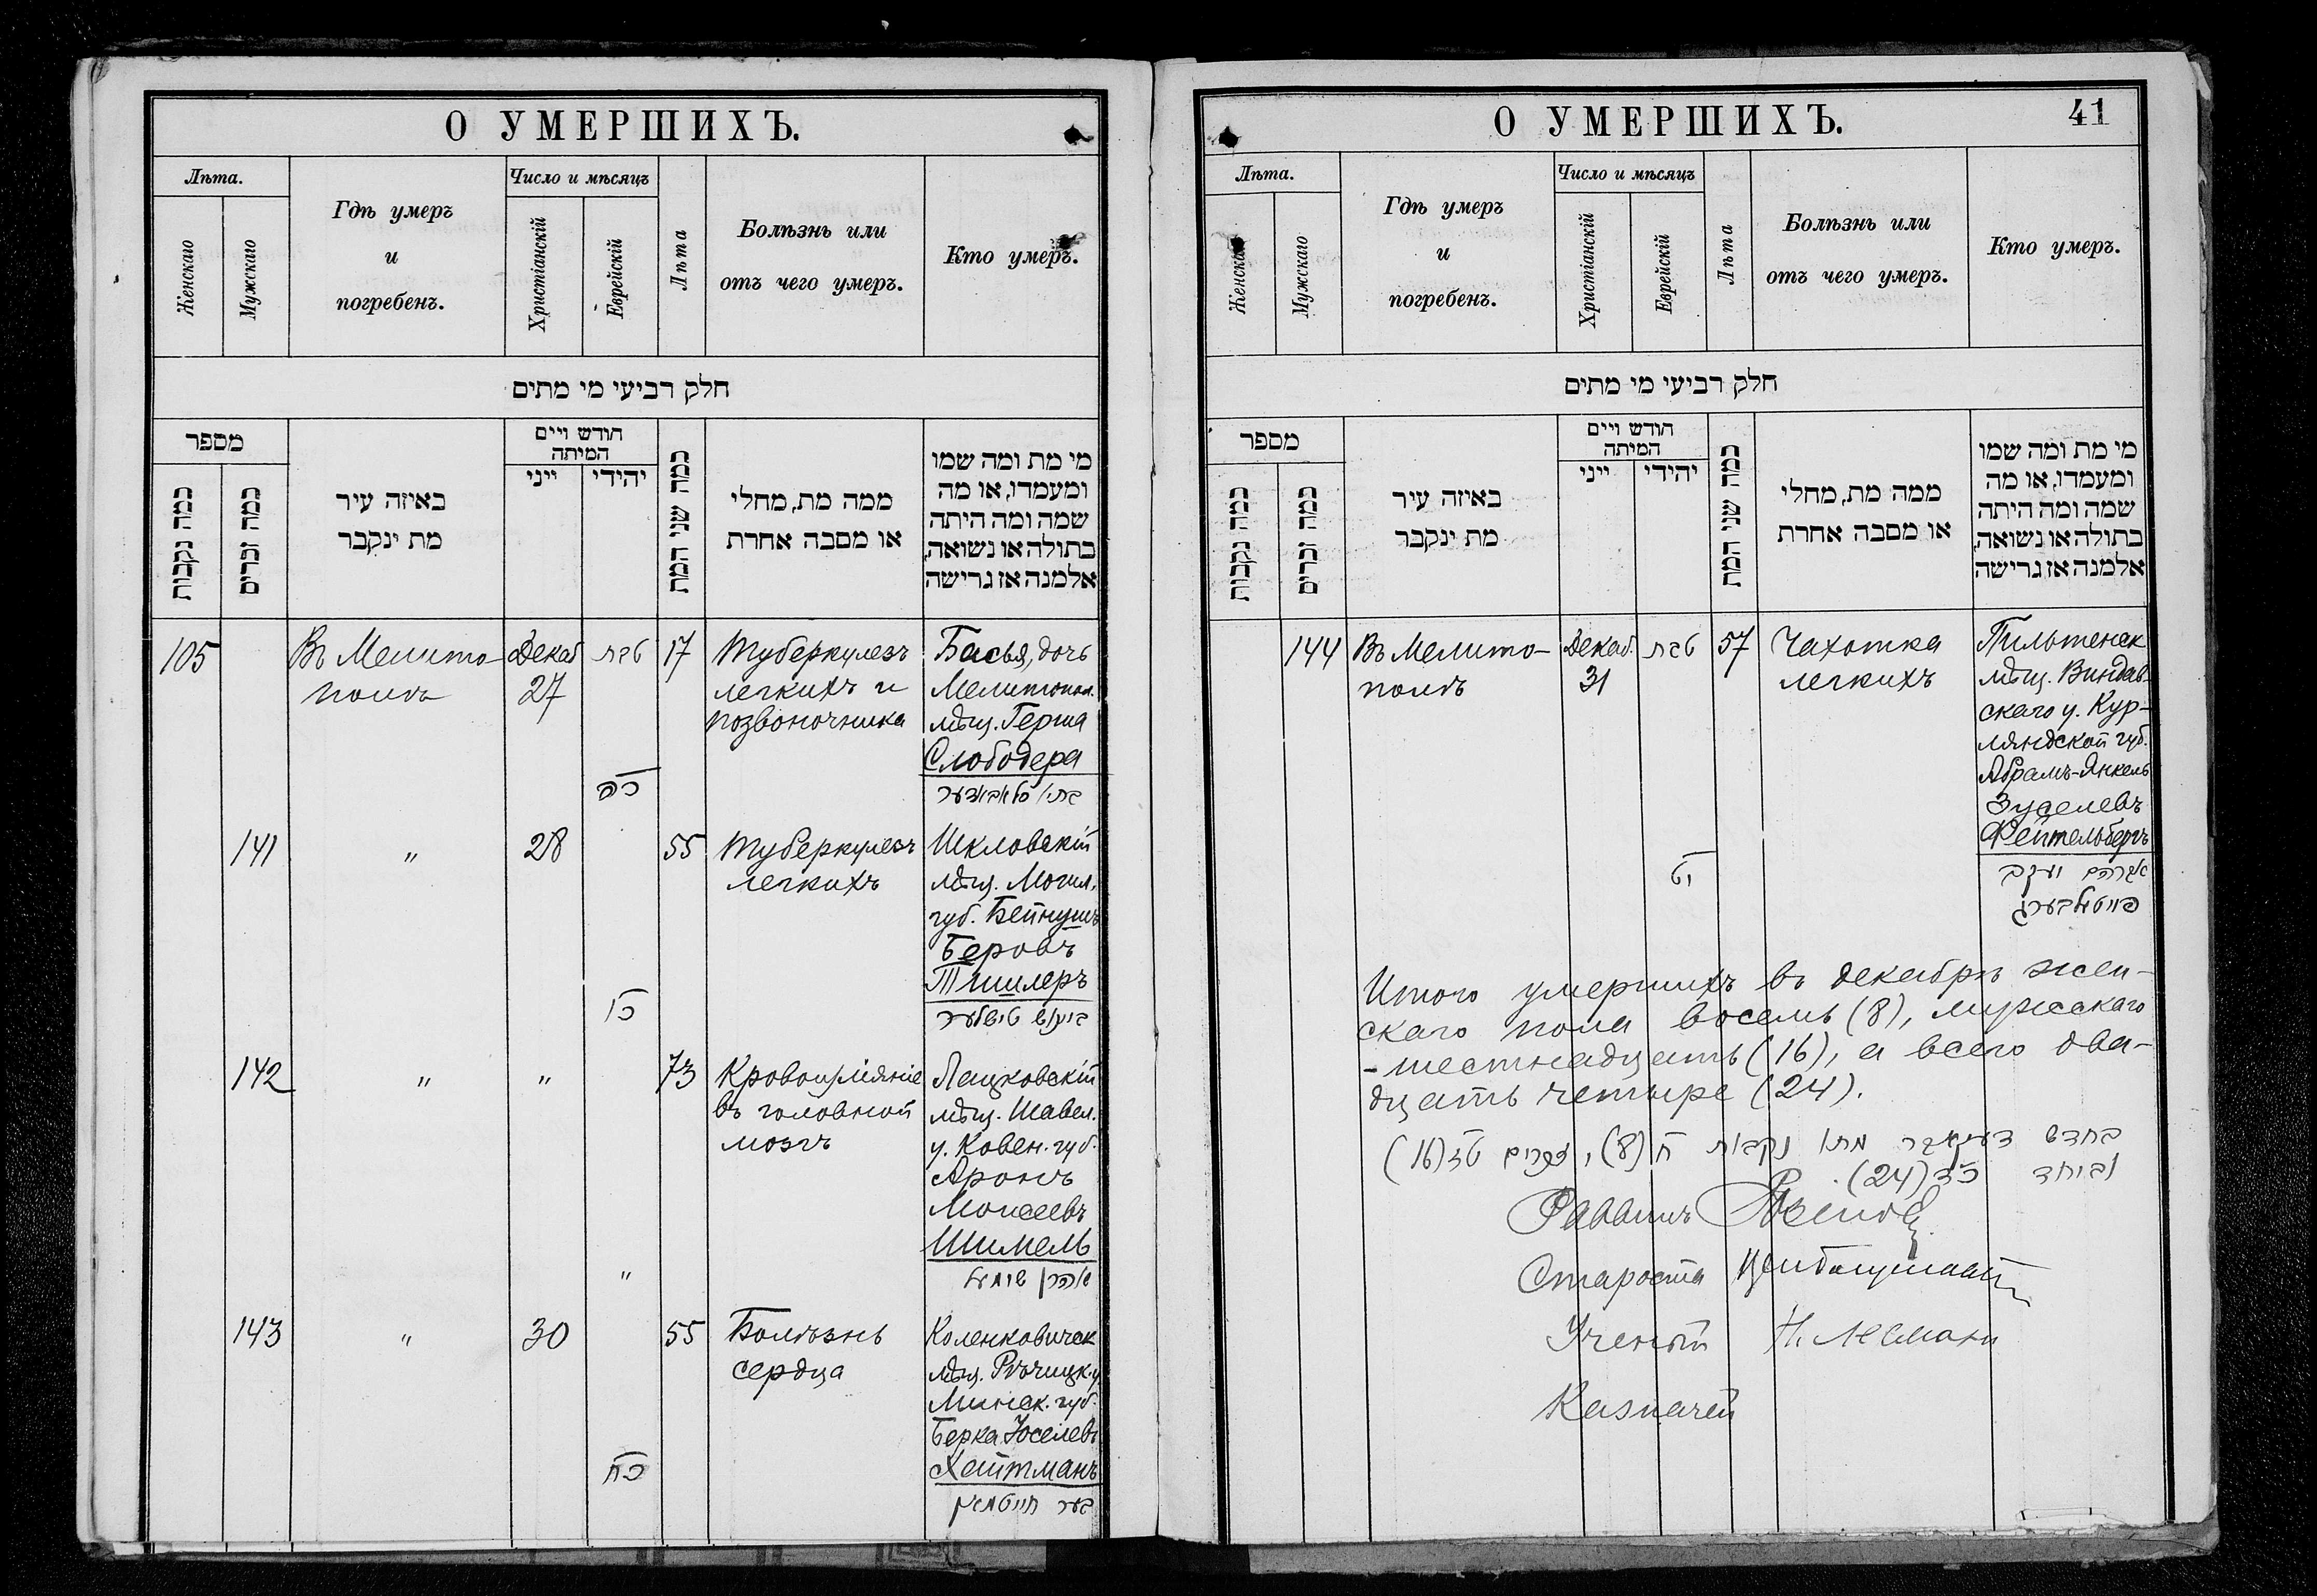 О УМЕРШИХЪ.
Лѣта.
Женскаго
Мужскаго
Гдѣ умеръ
и
погребенъ.
Число и мѣсяцъ
Христіанскій
Еврейскій
Лѣта
Болѣзнь или
отъ чего умеръ.
Кто умеръ.
חלק רביעי מי מתים
מספר
כמה נקבות
כמה זכרים
באיזה עיר
מת ינקבר
חודש ויים
המיתה
ייני
יהידי
כמה שני המת
ממה מת, מחלי
או מסבה אחרת
מי מת ומה שמו
ומעמדו, או מה
שמה ומה היתה
בתולה או נשואה,
אלמנה אז גרישה
105
Въ Мелито-
полѣ
Декаб
27
טבת
כה
17
Туберкулезъ
легкихъ и
позвоночника
Басья, дочь
Мелитопол.
мѣщ. Герша
Слободера
בתי' סלאבאדער
141
"
28
כו
55
Туберкулезъ
легкихъ
Шкловскій
мѣщ. Могил.
губ. Бейнушъ
Беровъ
Тишлеръ
ביינוש טישלער
142
"
"
"
73
Кровоизліяніе
въ головной
мозгъ
мѣщ. Шавел.
у. Ковен. губ.
Аронъ
Моисеевъ
Шимель
אהרן שימעל
143
"
30
כח
55
Болѣзнь
сердца
Коленковичск
мѣщ. Рѣчицк. у.
Минск. губ.
Берка Іоселевъ
Хайтманъ
בער חייטמאן
О УМЕРШИХЪ.
41
Лѣта.
Женскаго
Мужскаго
Гдѣ умеръ
и
погребенъ.
Число и мѣсяцъ
Христіанскій
Еврейскій
Лѣта
Болѣзнь или
отъ чего умеръ.
Кто умеръ.
חלק רביעי מי מתים
מספר
כמה נקבות
כמה זכרים
באיזה עיר
מת ינקבר
חודש ויים
המיתה
ייני
יהידי
כמה שני המת
ממה מת, מחלי
או מסבה אחרת
מי מת ומה שמו
ומעמדו, או מה
שמה ומה היתה
בתולה או נשואה,
אלמנה אז גרישה
144
Въ Мелито-
полѣ
Декаб.
31
טבת
57
Чахотка
легкихъ
Пильтенск
мѣщ. Виндав-
скаго у. Кур-
ляндской губ.
Абрамъ-Янкель
Зуселевъ
Фейтельбергъ
אברהם יעקב
פייטעלבערג
Итого умершихъ въ декабрѣ жен-
скаго пола восемь (8), мужескаго
- шестнадцать (16), а всего два-
дцать четыре (24).
בחדש דעקאבר מתו נקבות ח (8), זכרים טז (16)
וביחד כד (24).
Раввинъ
Староста
Ученый
Казначей